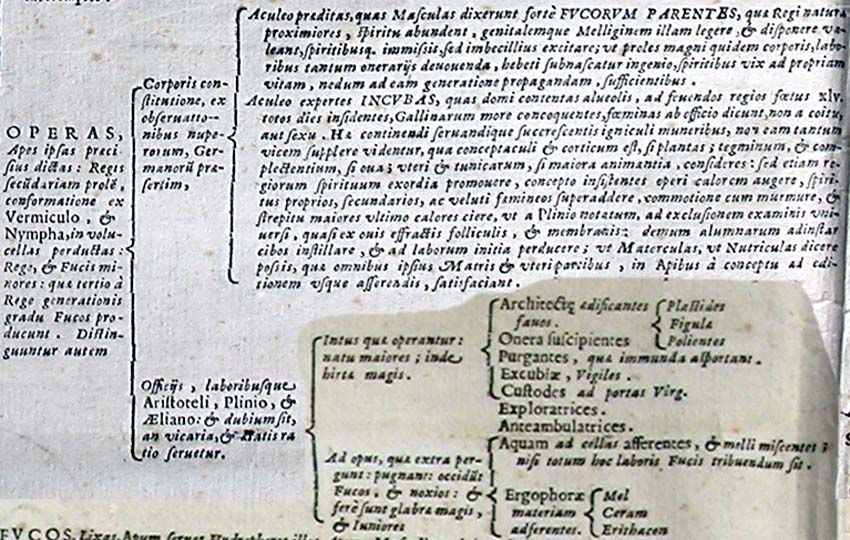 Aculeo præditas, quas Masculas dixerunt fortè FVCORVM PARENTES, quæ Regi natura
proximiores, spiritu abundent, genitalemque Melliginem illam legere, & disponere va-
leant, spiritibusq. immissis, sed imbecillius excitare; vt proles magni quidem corporis, labo-
ribus tantum onerarijs deuouenda, hebeti subnascatur ingenio, spiritibus vix ad propriam
vitam, nedum ad eam generatione propagandam, sufficientibus.
Corporis con-
stitutione, ex
obseruatio-
nibus nupe-
rorum, Ger-
manorũ præ-
sertim,
Aculeo expertes INCVBAS, quas domi contentas alueolis, ad fouendos regios fœtus xlv.
totos dies insidentes, Gallinarum more concoquentes, fœminas ab efficio dicunt, non a coitu,
aut sexu. Hæ continendi seruandique succrescentis igniculi muneribus, non eam tantum
vicem supplere videntur, quæ conceptaculi & corticum est, si plantas; tegminum, & com-
plectentium, si oua; vteri & tunicarum, si maiora animantia, consideres: sed etiam re-
giorum spirituum exordia promouere, concepto insistentes operi calorem augere, spiri-
tus proprios, secundarios, ac veluti fæmineos superaddere, commotione cum murmure, &
strepitu maiores vltimo calores ciere, vt a Plinio notatum, ad exclusionem examinis vni-
uersi, quasi ex ouis effractis folliculis, & membranis: demum alumnarum adinstar
cibos instillare, & ad laborum initia perducere; vt Materculas, vt Nutriculas dicere
possis, quæ omnibus ipsius Matris & vteri partibus, in Apibus à conceptu ad edi-
tionem vsque asserendis, satisfaciant.
OPERAS,
Apes ipsas præci-
sius dictas: Regis
secũdariam prolẽ,
conformatione ex
Vermiculo, &
Nympha, in volu-
cellas perductas:
Rege, & Fucis mi-
nores: quæ tertio à
Rege generationis
gradu Fucos pro-
ducunt. Distin-
guuntur autem
Officijs, laboribusque
Aristoteli, Plinio, &
Æliano: & dubium sit,
an vicaria, & ætatis ra
tio seruetur.
Intus quæ operantur:
natu maiores; inde
hirtæ magis.
Architectę ædificantes
fauos.
Plastides
Figulæ
Polientes
Onera suscipientes
Purgantes, quæ immunda asportant.
Excubiæ, Vigiles.
Custodes ad portas Virg.
Exploratrices.
Anteambulatrices.
Ad opus, quæ extra per-
gunt: pugnant: occidũt
Fucos, & noxios: &
ferè sunt glabræ magis,
& Iuniores
Aquam ad cellas afferentes, & melli miscentes;
nisi totum hoc laboris Fucis tribuendum sit.
Ergophoræ
materiam
adferentes.
Mel
Ceram
Erithacen
FVCOS,